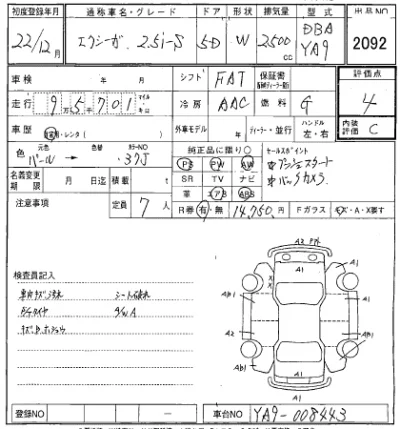 初度登録年月 通称車名・グレード ドア 形状 排気量 型式 出品NO
22/12月 エクシーガ 2.5i-S 5D W 2500cc DBA YA9 2092
車検 年 月 シフト FAT 保証書 評価点
走行 9万5701 マイル キロ 冷房 AAC 燃料 G 4
車歴 自家用・レンタ( ) 外車モデル 年 ディーラー・並行 ハンドル 左・右 内装評価 C
色 元色 パール → 色替 カラーNO 37J 純正品に限り○ セールスポイント
PS PW AW プッシュスタート
名義変更期限 月 日迄 積載 t SR TV ナビ バックカメラ
革 エアB ABS
注意事項 定員 7人 R券 有・無 14,750円 Fガラス キズ・A・X要す
検査員記入
A2
A1
車内キズ汚れ シート破れ
Ab1
A1
A2
A1
Ab1
A1
登録NO 車台NO YA9-008443